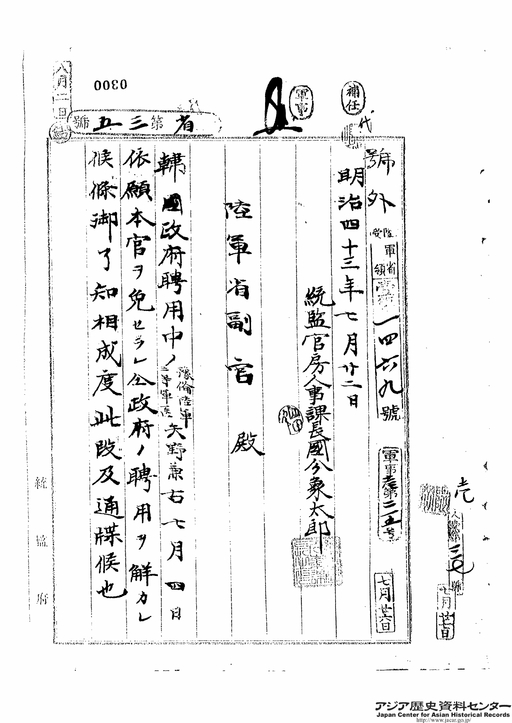 號外
陸軍省受領
一四六九號
軍事 第二五號
七月廿六日
明治四十三年七月廿二日
統監官房人事課長國分象太郎
陸軍省副官 殿
韓國政府聘用中ノ豫備陸軍
矢野兼古七月四日
依願本官ヲ免セラレ仝政府ノ聘用ヲ解カレ
候條御了知相成度此段及通牒候也
統監府
省第三五號
八月二日
0300
軍事
補任
七月廿七日
アジア歴史資料センター
Japan Center for Asian Historical Records
http://www.jacar.go.jp/